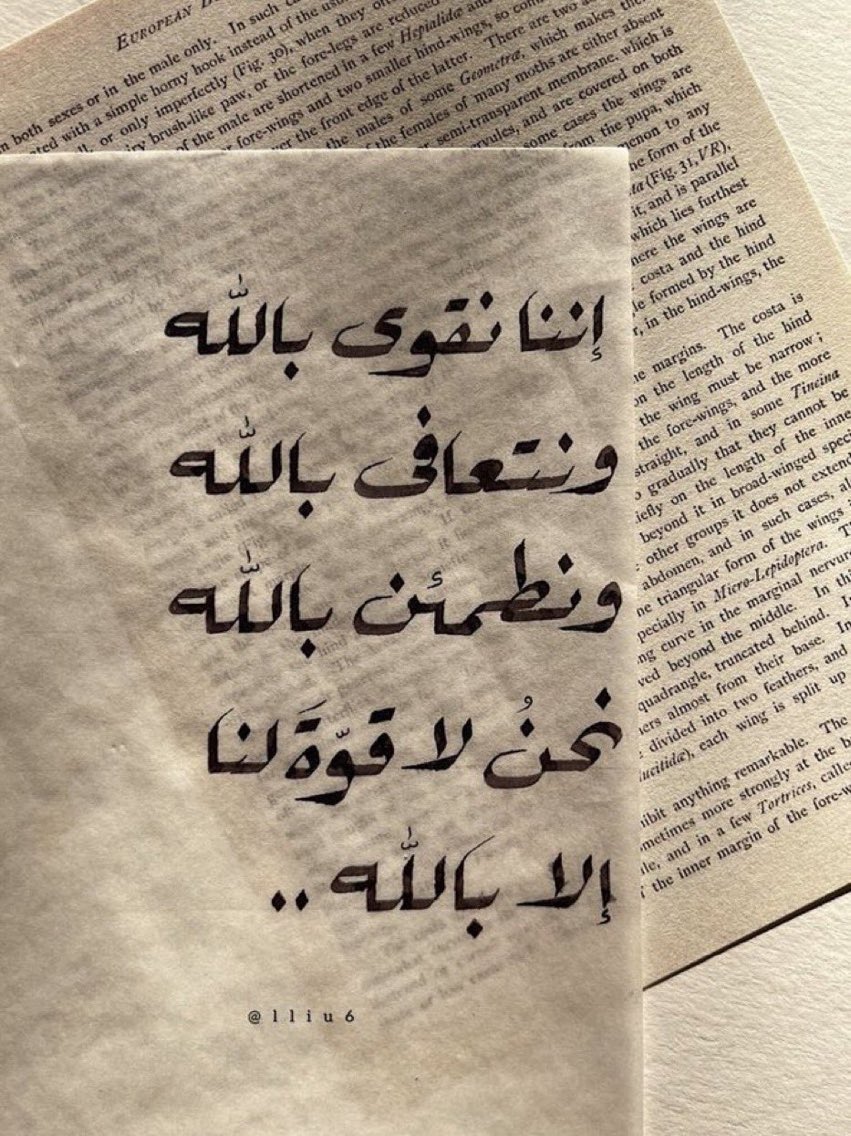 EUROPEAN
both sexes or in the male only. In such
with a simple horny hook instead of the
or only imperfectly (Fig. 30), when they
brush-like paw, or the fore-legs are reduced
of the male are shortened in a few Hepialidæ and
fore-wings and two smaller hind-wings, so
the front edge of the latter. There are two
the males of some Geometræ, which makes
the females of many moths are either absent
semi-transparent membrane, which is
and are covered on both
some cases the wings are
from the pupa, which
to any
the form of the
(Fig. 31, VR),
it, and is parallel
which lies furthest
the wings are
costa and the hind
formed by the hind
in the hind-wings, the
margins. The costa is
on the length of the hind
the wing must be narrow;
the fore-wings, and the more
straight, and in some Tineina
gradually that they cannot be
on the length of the inner
beyond it in broad-winged
other groups it does not extend
abdomen, and in such cases,
triangular form of the wings
in Micro-Lepidoptera.
curve in the marginal
beyond the middle. In
quadrangle, truncated behind.
almost from their base. In
divided into two feathers, and
each wing is split up
anything remarkable. The
more strongly at the
and in a few Tortrices,
the inner margin of the
إننا نقوى بالله
ونتعافى بالله
ونطمئن بالله
نحنُ لا قوّةَ لنا
إلا بالله ..
@lliu6